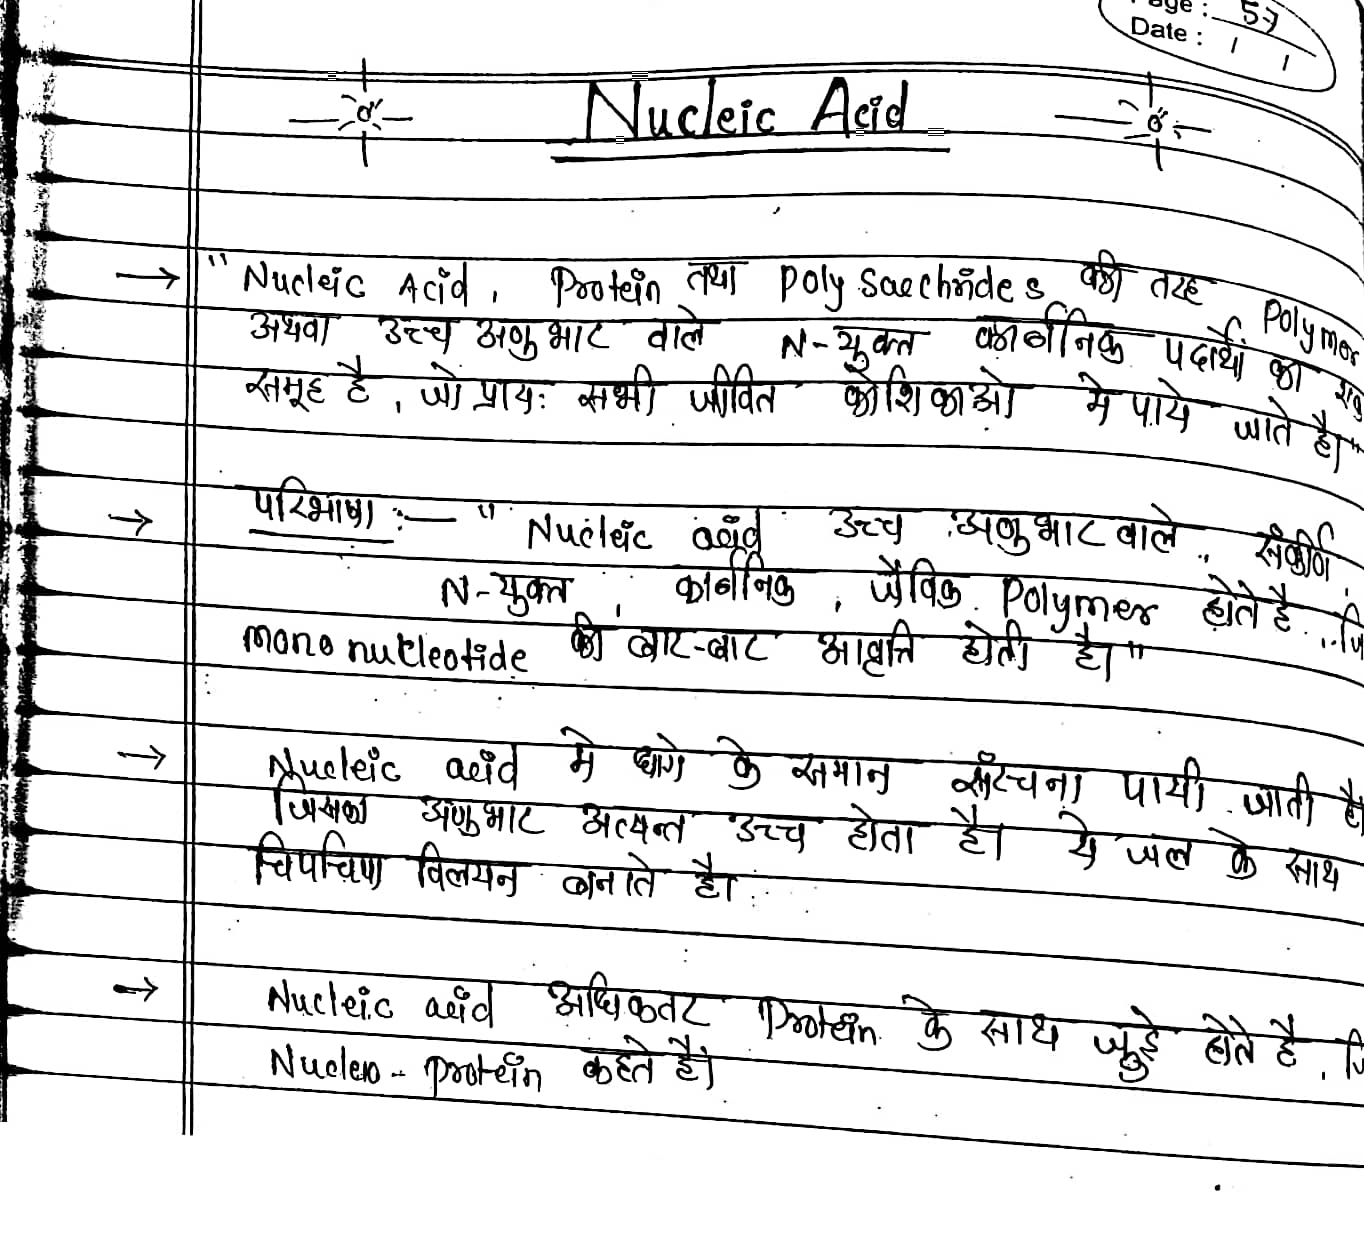 Page : 57
Date : / /
Nucleic Acid
→ " Nucleic Acid, Protein तथा Poly Saechrides की तरह Polymer
अथवा उच्च अणुभार वाले N-युक्त कार्बनिक पदार्थो का
समूह है, जो प्रायः सभी जीवित कोशिकाओ मे पाये जाते है।"
→ परिभाषा :— " Nucleic acid उच्च अणुभार वाले, संकीर्ण,
N-युक्त, कार्बनिक, जैविक Polymer होते है,
mono nucleotide की बार-बार आवृत्ति होती है।"
→ Nucleic acid मे धागे के समान संरचना पायी जाती है।
जिसका अणुभार अत्यन्त उच्च होता है। ये जल के साथ
चिपचिपा विलयन बनाते है।
→ Nucleic acid अधिकतर Protein के साथ जुड़े होते है,
Nucleo - protein कहते है।